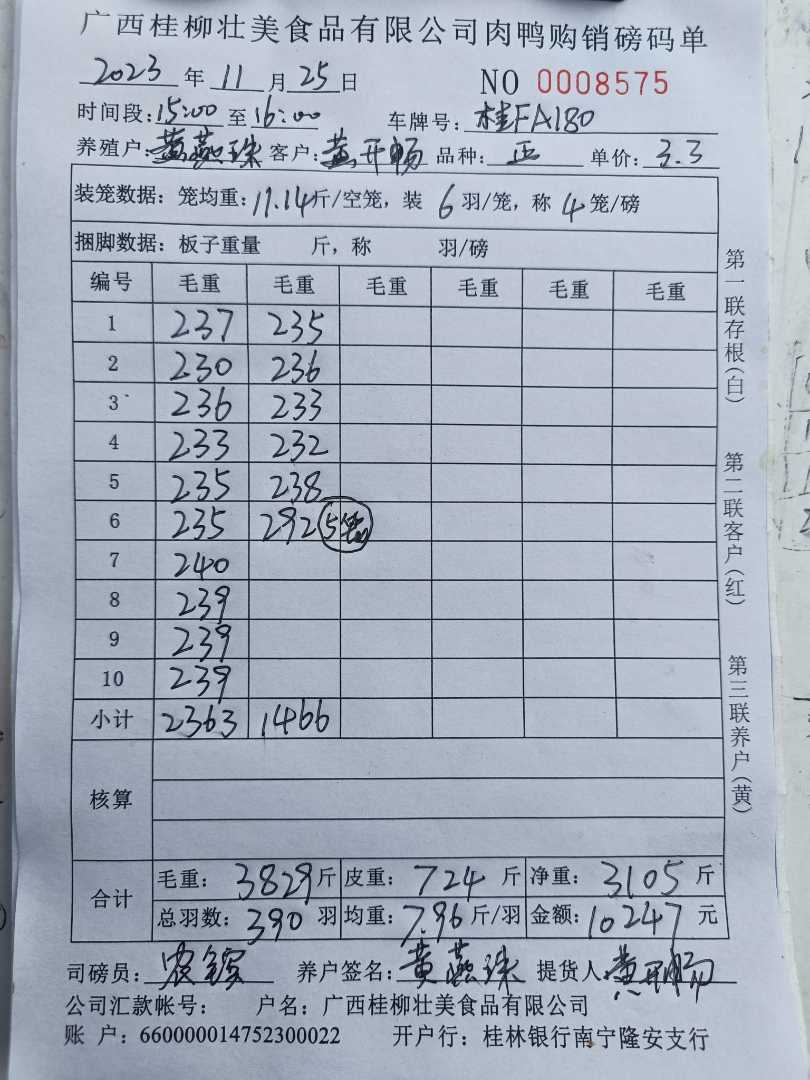 广西桂柳壮美食品有限公司肉鸭购销磅码单
2023 年 11 月 25 日 NO 0008575
时间段: 15:00 至 16:00 车牌号: 桂FA180
养殖户: 黄燕珠 客户: 黄开畅 品种: 正 单价: 3.3
装笼数据: 笼均重: 11.14 斤/空笼, 装 6 羽/笼, 称 4 笼/磅
捆脚数据: 板子重量 斤, 称 羽/磅
编号 毛重 毛重 毛重 毛重 毛重 毛重
1 237 235
2 230 236
3 236 233
4 233 232
5 235 238
6 235 292 5笼
7 240
8 239
9 239
10 239
小计 2363 1466
核算
合计
毛重: 3829 斤 皮重: 724 斤 净重: 3105 斤
总羽数: 390 羽 均重: 7.96 斤/羽 金额: 10247 元
司磅员: 养户签名: 黄燕珠 提货人: 黄开畅
公司汇款帐号: 户名: 广西桂柳壮美食品有限公司
账 户: 660000014752300022 开户行: 桂林银行南宁隆安支行
第一联存根(白)
第二联客户(红)
第三联养户(黄)